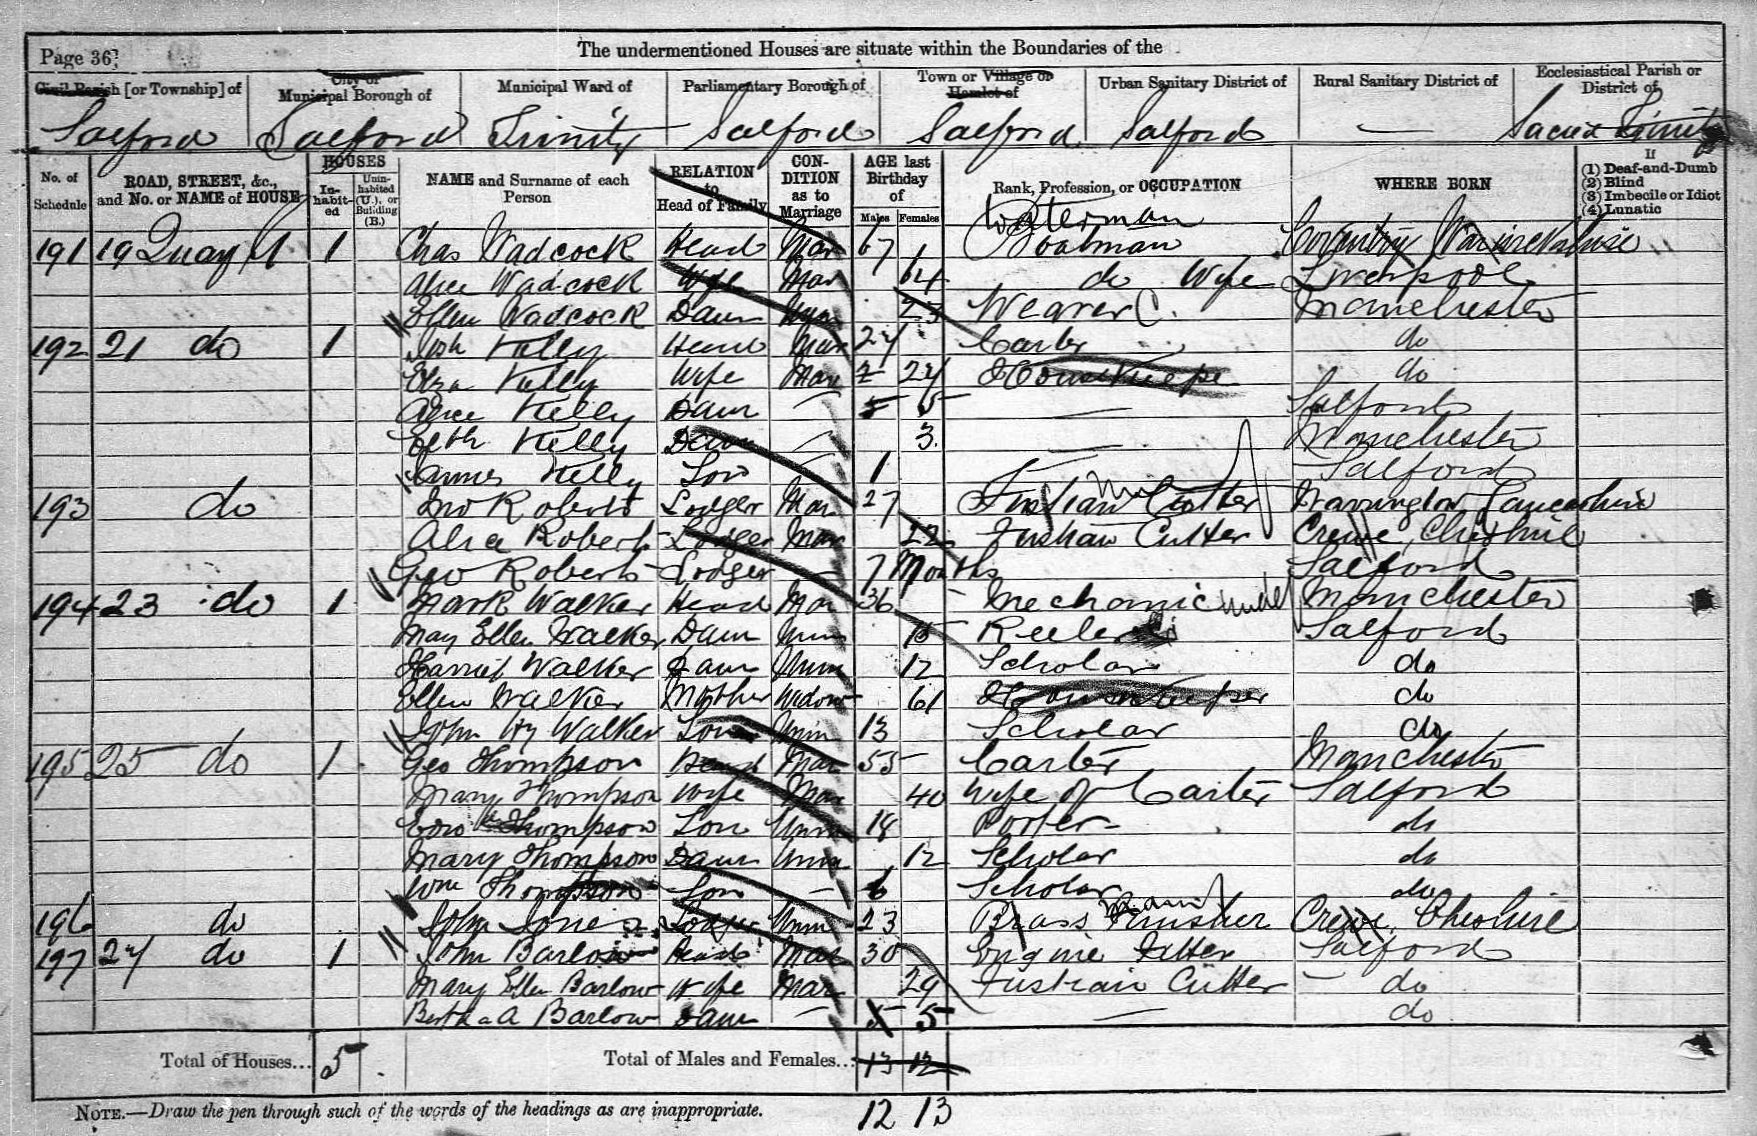 Page 36
The undermentioned Houses are situate within the Boundaries of the
Civil Parish [or Township] of
City or Municipal Borough of
Municipal Ward of
Parliamentary Borough of
Town or Village or Hamlet of
Urban Sanitary District of
Rural Sanitary District of
Ecclesiastical Parish or District of
Salford Salford Trinity Salford Salford Salford — Sacred Trinity
No. of Schedule
ROAD, STREET, &c., and No. or NAME of HOUSE
HOUSES
In-habit-ed
Unin-habited (U.), or Building (B.)
NAME and Surname of each Person
RELATION to Head of Family
CON-DITION as to Marriage
AGE last Birthday of
Males Females
Rank, Profession, or OCCUPATION
WHERE BORN
If
(1) Deaf-and-Dumb
(2) Blind
(3) Imbecile or Idiot
(4) Lunatic
Waterman
191 19 Quay St 1 Chas Wadcock Head Mar 67 Boatman Coventry Warwickshire
Alice Wadcock Wife Mar 64 do Wife Liverpool
Ellen Wadcock Daur 23 Weaver C. Manchester
192 21 do 1 Josh Kelly Head Mar 24 Carter do
Eliza Kelly Wife Mar 2 24 Housekeeper do
Alice Kelly Daur — 5 5 — Salford
Elth Kelly Daur 3 — Manchester
James Kelly Son 1 Salford
193 do Jno Roberts Lodger Mar 27 Fustian Cutter Warrington Lancashire
Alice Roberts Lodger Mar 22 Fustian Cutter Crewe, Cheshire
Geo Roberts Lodger — 7 Months Salford
194 23 do 1 Mark Walker Head Mar 36 Mechanic Manchester
May Ellen Walker Daur Unm 15 Reeler Salford
Harriet Walker Daur Unm 12 Scholar do
Ellen Walker Mother Widow 61 Housekeeper do
John Hy Walker Son Unm 13 Scholar do
195 25 do 1 Geo Thompson Head Mar 55 Carter Manchester
Mary Thompson Wife Mar 40 Wife of Carter Salford
Thompson Son Unm 18 Porter do
Mary Thompson Daur Unm 12 Scholar do
Wm Thompson Son — 6 Scholar do
196 do John Jones Lodger Unm 23 Brass Finisher Crewe, Cheshire
197 27 do 1 John Barlow Head Mar 30 Engine Fitter Salford
Mary Ellen Barlow Wife Mar 29 Fustian Cutter do
Bertha A Barlow Daur — 5 5 — do
Total of Houses... 5
Total of Males and Females... 13 12
NOTE.—Draw the pen through such of the words of the headings as are inappropriate.
12 13